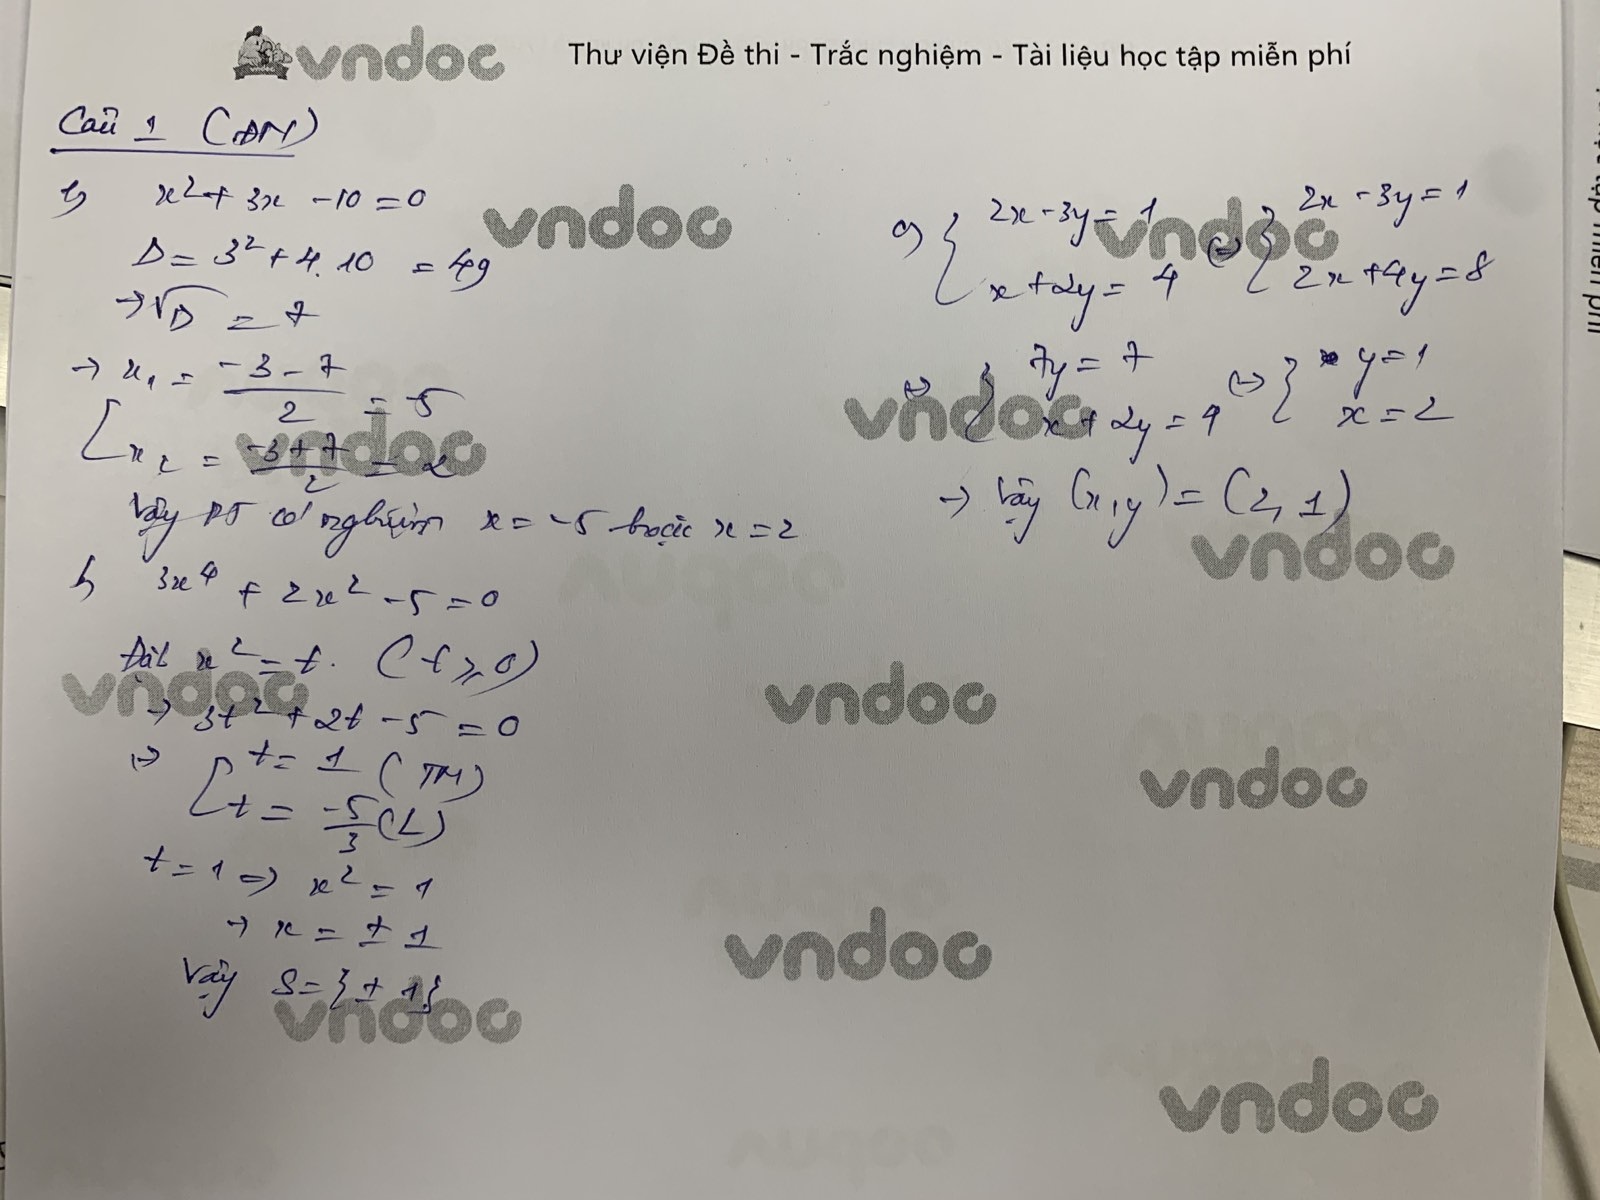 vndoc Thư viện Đề thi - Trắc nghiệm - Tài liệu học tập miễn phí
Câu 1 (ĐN)
x² + 3x - 10 = 0
Δ = 3² + 4.10 = 49
→ √Δ = 7
→ x₁ = (-3 - 7)/2 = -5
x₂ = (-3 + 7)/2 = 2
Vậy PT có nghiệm x = -5 hoặc x = 2
b, 3x⁴ + 2x² - 5 = 0
Đặt x² = t. (t ≥ 0)
→ 3t² + 2t - 5 = 0
↔ [ t = 1 (TM)
t = -5/3 (L)
t = 1 => x² = 1
→ x = ± 1
Vậy S = {± 1}
c, { 2x - 3y = 1 (=) { 2x - 3y = 1
x + 2y = 4 2x + 4y = 8
(=) { 7y = 7 (=) { y = 1
x + 2y = 4 x = 2
→ Vậy (x, y) = (2, 1)
vndoc
vndoc
vndoc
vndoc
vndoc
vndoc
vndoc
vndoc
vndoc
vndoc
vndoc